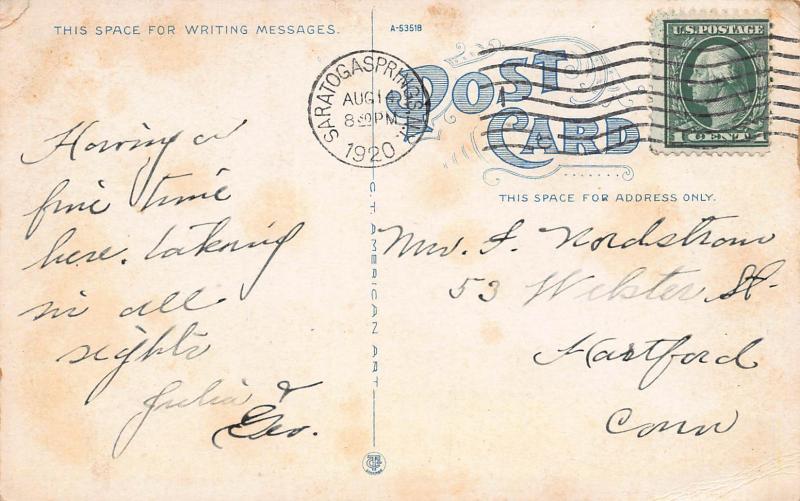 THIS SPACE FOR WRITING MESSAGES.
A-53518
POST
CARD
THIS SPACE FOR ADDRESS ONLY.
SARATOGA SPRINGS, N.Y.
AUG 14
8 30 PM
1920
U.S. POSTAGE
1 CENT 1
Having a
fine time
here. takeing
in all
sights
Julia &
Geo.
C.T. AMERICAN ART
F. Nordstrom
53 Webster St.
Hartford
Conn